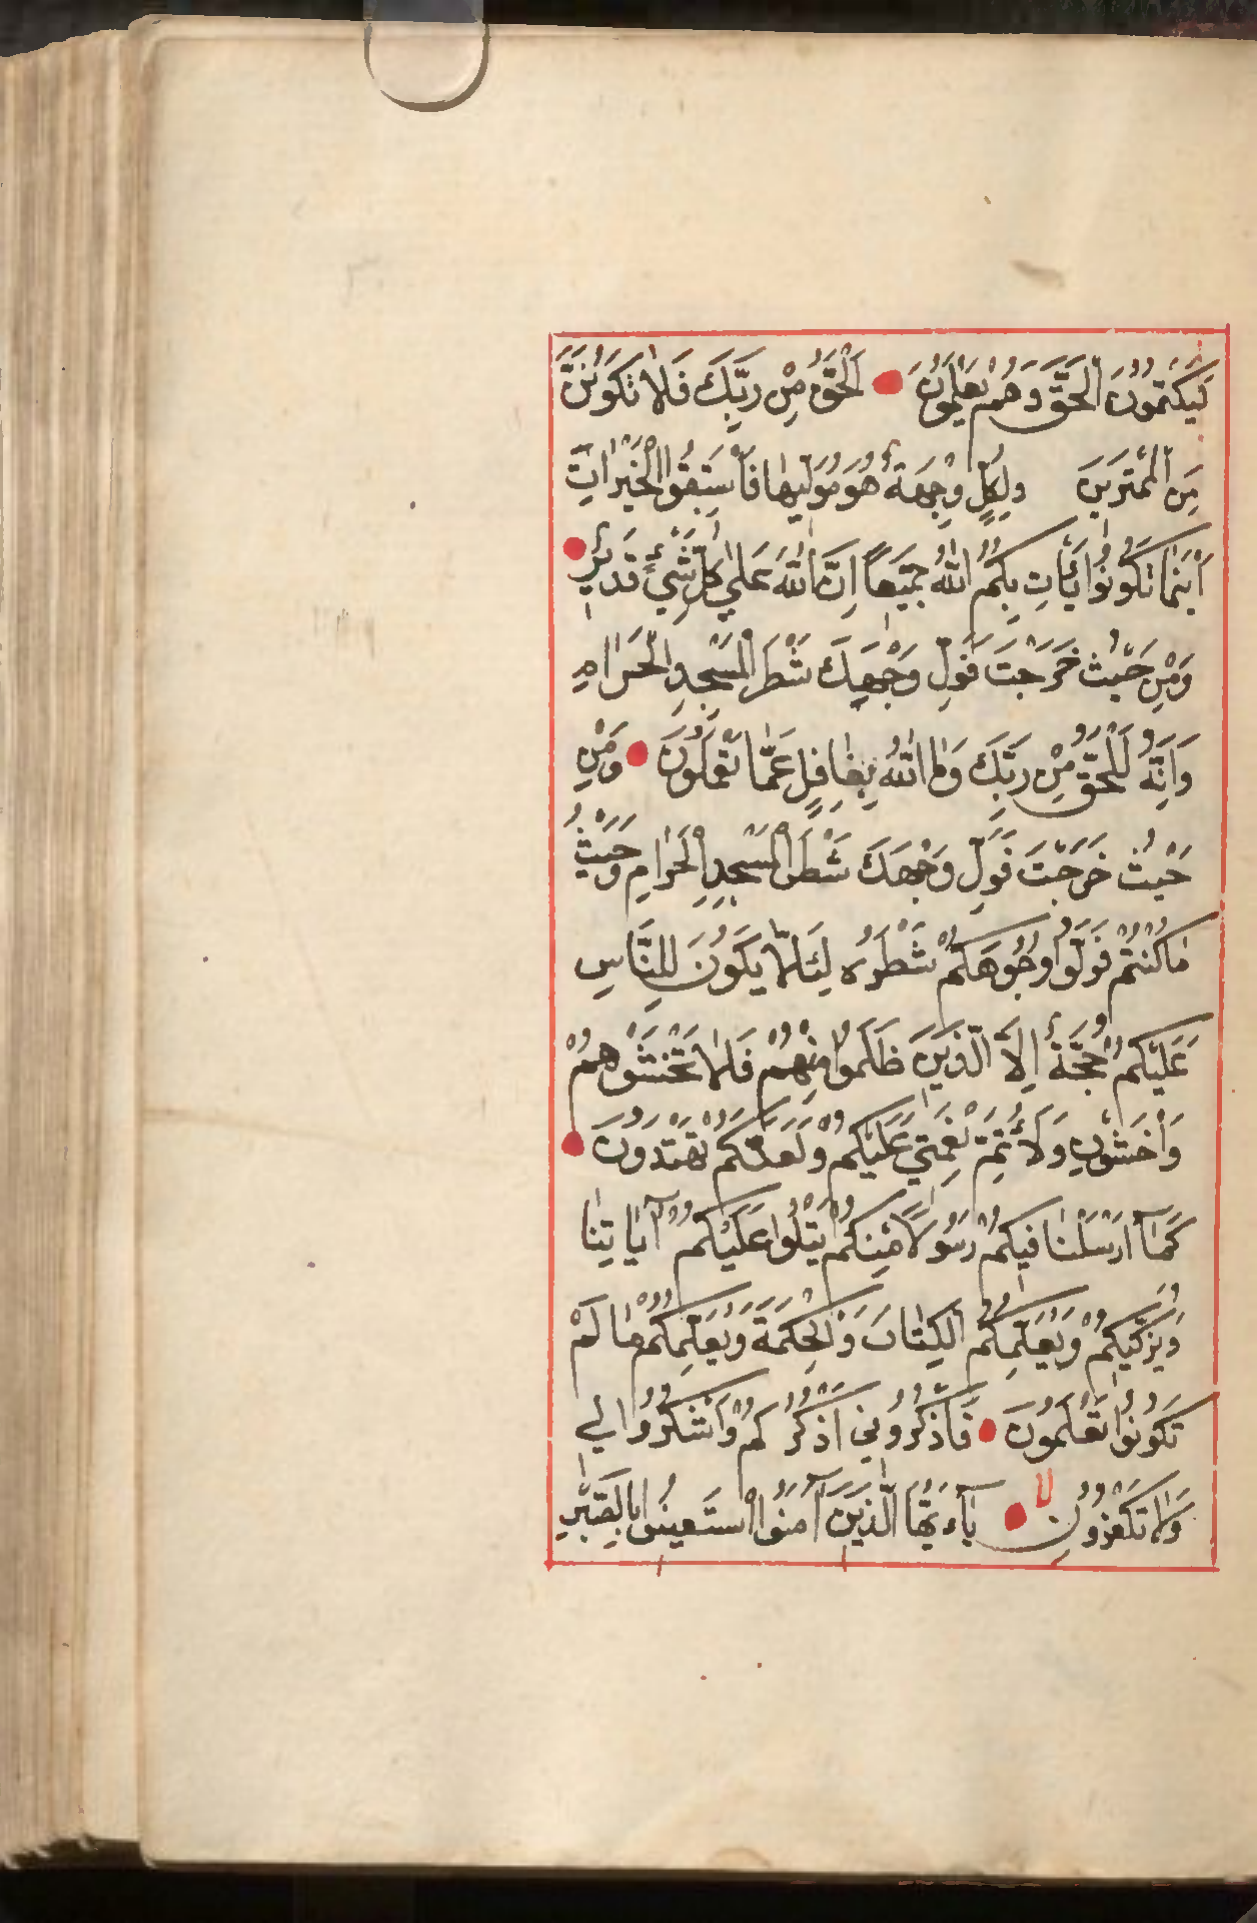 لَيَكْتُمُونَ الْحَقَّ وَهُمْ يَعْلَمُونَ الْحَقُّ مِنْ رَبِّكَ فَلَا تَكُونَنَّ
مِنَ الْمُمْتَرِينَ وَلِكُلٍّ وِجْهَةٌ هُوَ مُوَلِّيهَا فَاسْتَبِقُوا الْخَيْرَاتِ
أَيْنَمَا تَكُونُوا يَأْتِ بِكُمُ اللَّهُ جَمِيعًا إِنَّ اللَّهَ عَلَىٰ كُلِّ شَيْءٍ قَدِيرٌ
وَمِنْ حَيْثُ خَرَجْتَ فَوَلِّ وَجْهَكَ شَطْرَ الْمَسْجِدِ الْحَرَامِ
وَإِنَّهُ لَلْحَقُّ مِنْ رَبِّكَ وَمَا اللَّهُ بِغَافِلٍ عَمَّا تَعْمَلُونَ وَمِنْ
حَيْثُ خَرَجْتَ فَوَلِّ وَجْهَكَ شَطْرَ الْمَسْجِدِ الْحَرَامِ وَحَيْثُ
مَا كُنْتُمْ فَوَلُّوا وُجُوهَكُمْ شَطْرَهُ لِئَلَّا يَكُونَ لِلنَّاسِ
عَلَيْكُمْ حُجَّةٌ إِلَّا الَّذِينَ ظَلَمُوا مِنْهُمْ فَلَا تَخْشَوْهُمْ
وَاخْشَوْنِ وَلَأُتِمَّ نِعْمَتِي عَلَيْكُمْ وَلَعَلَّكُمْ تَهْتَدُونَ
كَمَآ أَرْسَلْنَا فِيكُمْ رَسُولًا مِنْكُمْ يَتْلُوا عَلَيْكُمْ آيَاتِنَا
وَيُزَكِّيكُمْ وَيُعَلِّمُكُمُ الْكِتَابَ وَالْحِكْمَةَ وَيُعَلِّمُكُمْ مَا لَمْ
تَكُونُوا تَعْلَمُونَ فَاذْكُرُونِي أَذْكُرْكُمْ وَاشْكُرُوا لِي
وَلَا تَكْفُرُونِ لا يَآءَيُّهَا الَّذِينَ آمَنُوا اسْتَعِينُوا بِالصَّبْرِ